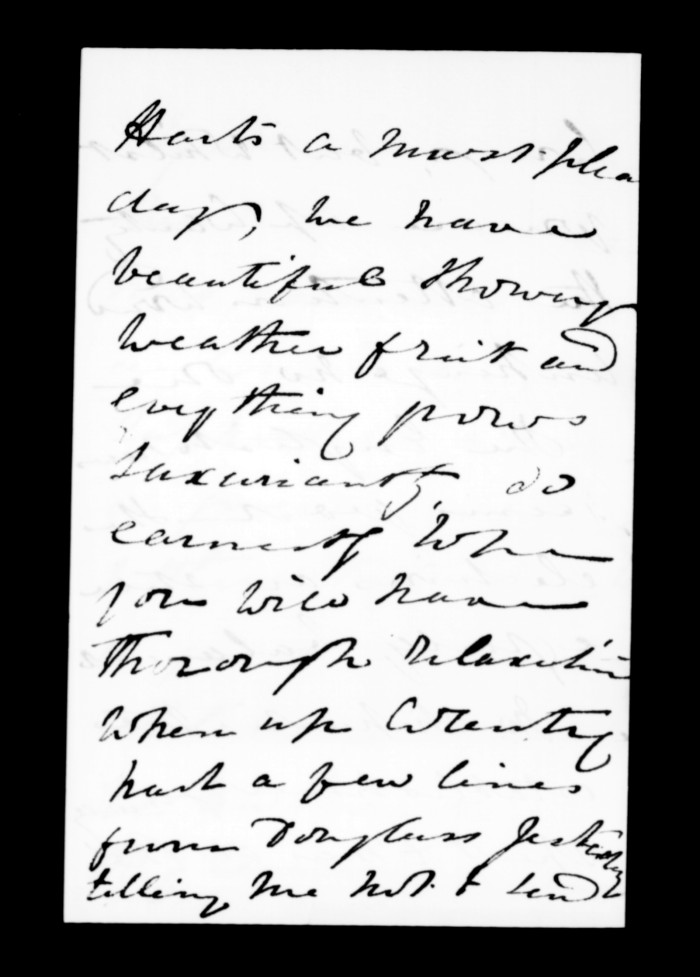 Harts a most plea
day, we have
beautiful showery
weather fruit and
evrything grows
luxuriantly, so
earnestly hope
you will have
thorough relaxation
when up Country
had a few lines
from Douglass yesterday
telling me not to send